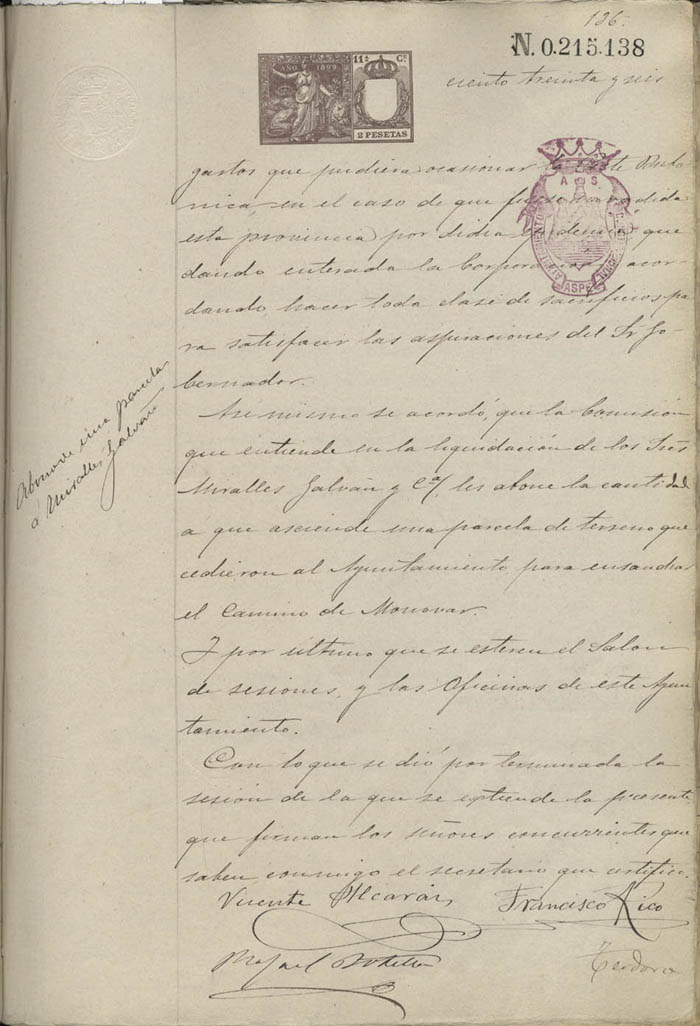 136.
N. 0.215.138
AÑO 1899
11ª Cl
2 PESETAS
ciento treinta y seis
gastos que pudiera ocasionar la Peste Bubó
nica, en el caso de que fuese invadida
esta provincia por dicha Epidemia, que
dando enterada la Corporación y acor
dando hacer toda clase de sacrificios pa
ra satisfacer las aspiraciones del Sr Go
bernador.
Abono de una parcela
á Miralles, Galván
Asi mismo se acordó, que la Comisión
que entiende en la liquidación de los Sres
Miralles Galván y Cª, les abone la cantidad
a que asciende una parcela de terreno que
cedieron al Ayuntamiento para ensanchar
el Camino de Monovar.
Y por último que se esteren el Salon
de sesiones, y las Oficinas de este Ayun
tamiento.
Con lo que se dió por terminada la
sesión de la que se extiende la presente
que firman los señores concurrentes que
saben conmigo el secretario que certifico.
Vicente Alcaraz Francisco Rico
Rafael Botella
Teodoro